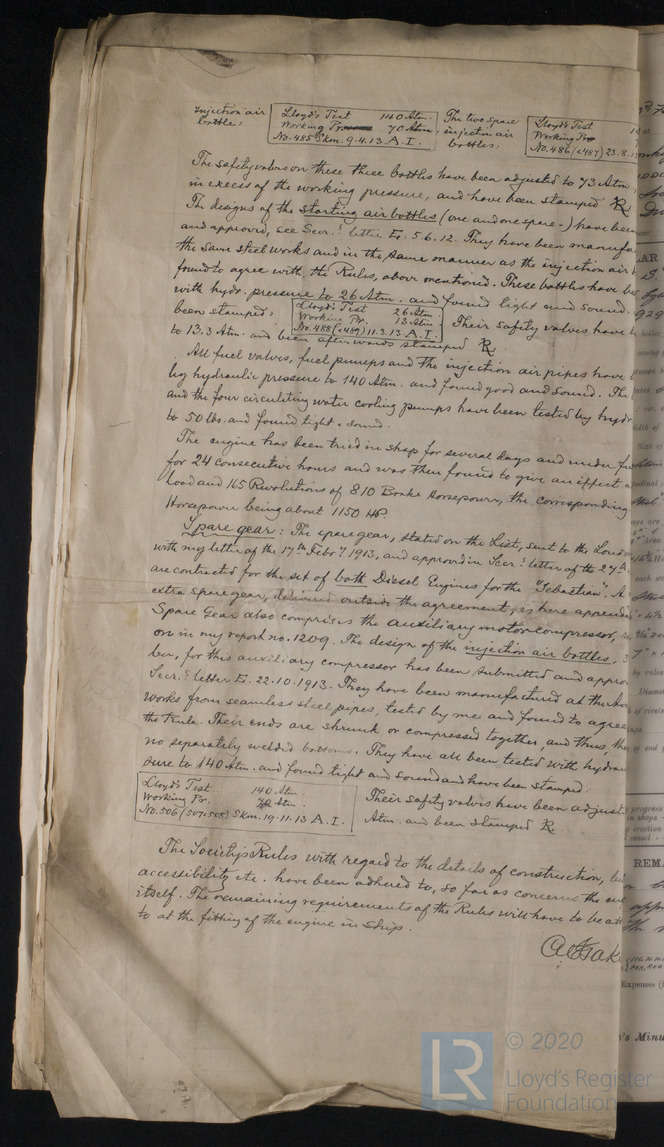 Injection air bottle: Lloyd's Test 140 Atm. Working 70 Atm. No. 485 Skm. 9.4.13 A.I. The two spare injection air bottles: Lloyd's Test Working Pr No. 486 (&487) 23.8.
The safety valves on these three bottles have been adjusted to 73 Atm
in excess of the working pressure, and have been stamped LR
The designs of the starting air bottles (one and one spare-) have been
and approved, see Secr.s letter E. 5.6.12. They have been manufa
the same steelworks and in the same manner as the injection air
found to agree with the Rules, above mentioned. These bottles have be
with hydr. pressure to 26 Atm. and found tight and sound.
been stamped: Lloyd's Test 26 Atm. Working Pr. 12 Atm. No. 488 (&489) 11.3.13 A.I. Their safety valves have
to 13.3 Atm. and been afterwards stamped LR
All fuel valves, fuel pumps and the injection air pipes have
by hydraulic pressure to 140 Atm. and found good and sound. The
and the four circulating water cooling pumps have been tested by hydr
to 50 lbs. and found tight & sound.
The engine has been tried in shop for several days and under fu
for 24 consecutive hours and was then found to give an effect
load and 165 Revolutions of 810 Brake horsepower, the corresponding
Horsepower being about 1150 HP.
Spare gear: The spare gear, stated on the List, sent to the Lond
with my letter of the 17th Febry 1913, and approved in Secr.s letter of the 27th
are contracted for the set of both Diesel Engines for the "Sebastian". A
extra spare gear, delivered outside the agreement, is here append
Spare Gear also comprises the auxiliary motor compressor,
on in my report no. 1209. The design of the injection air bottles, 3
ber, for this auxiliary compressor has been submitted and appro
Secr.s letter E. 22.10.1913. They have been manufactured at the
works from seamless steel pipes, tested by me and found to agree
the Rule. Their ends are shrunk or compressed together, and thus, the
no separately welded bottoms. They have all been tested with hydrau
sure to 140 Atm. and found tight and sound and have been stamped:
Lloyd's Test 140 Atm. Working Pr. 70 Atm. No. 506 (507&508) Skm. 19.11.13 A.I. Their safety valves have been adjust
Atm. and been stamped LR
The Society's Rules with regard to the details of construction,
accessibility etc. have been adhered to, so far as concerns the en
itself. The remaining requirements of the Rules will have to be at
to at the fitting of the engine in ship.
REMA
Expenses (
's Minu
LR
© 2020
Lloyd's Register
Foundation